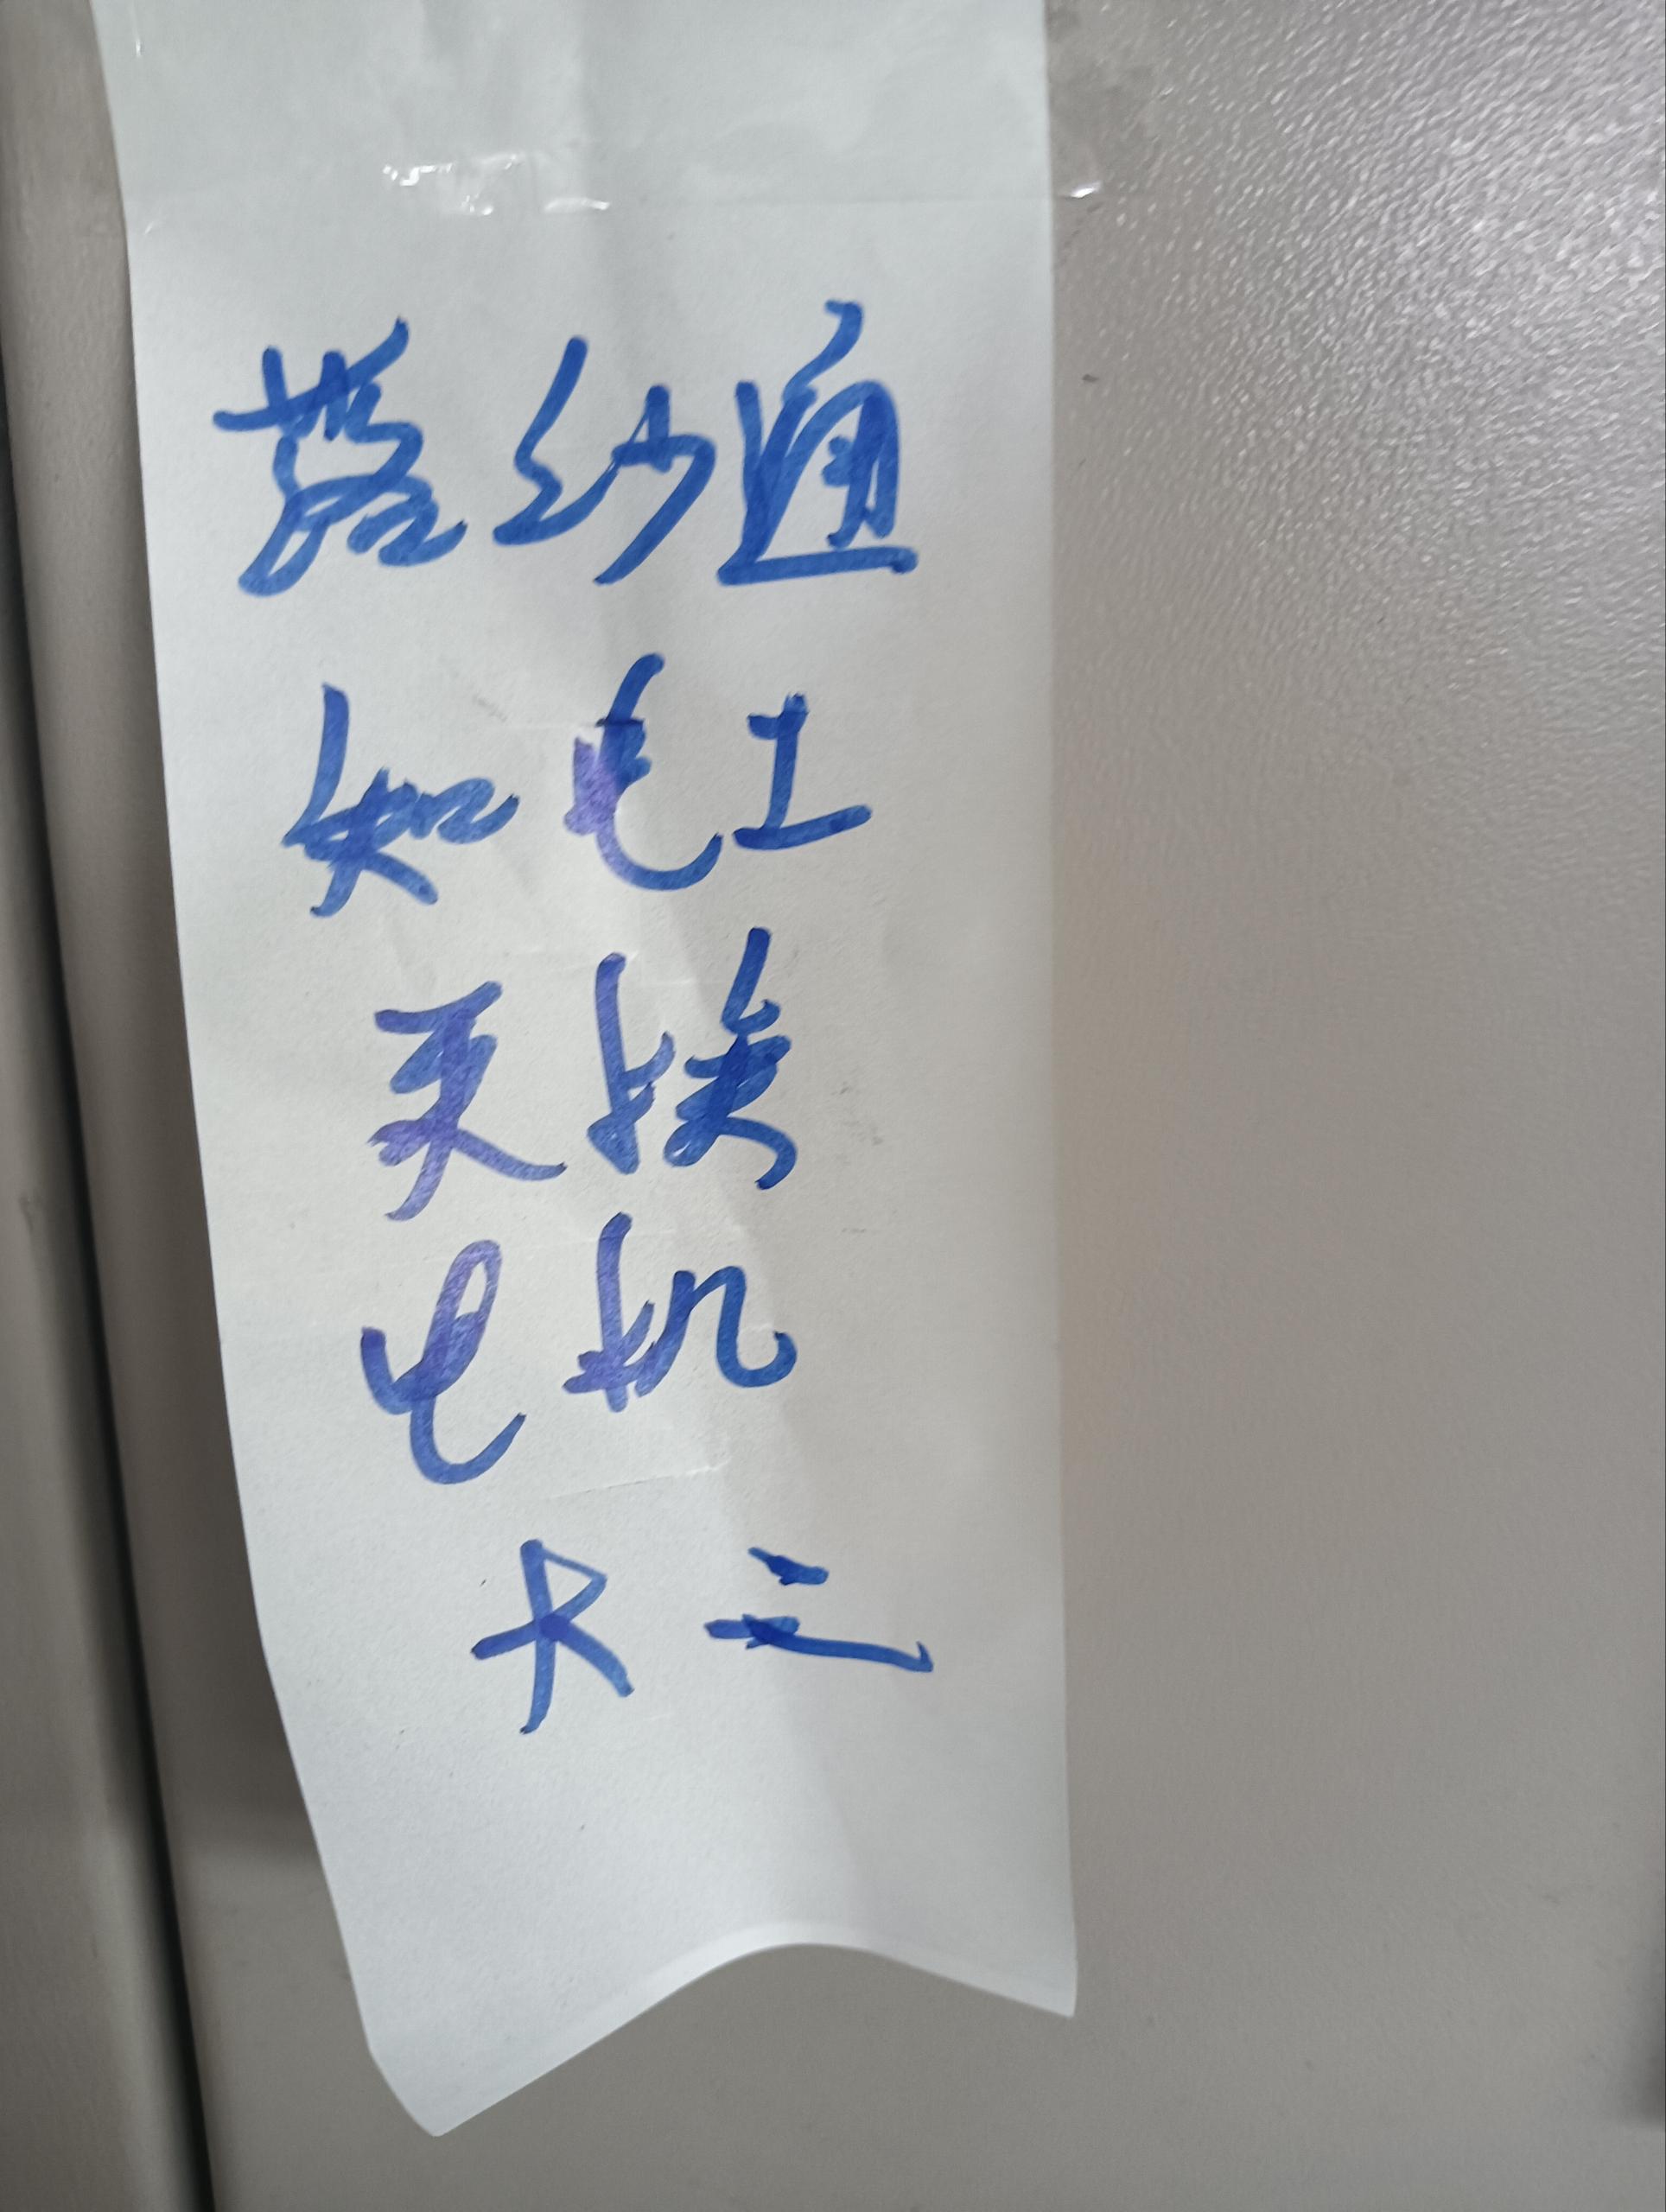 落纱通
知电工
更换
电机
大三